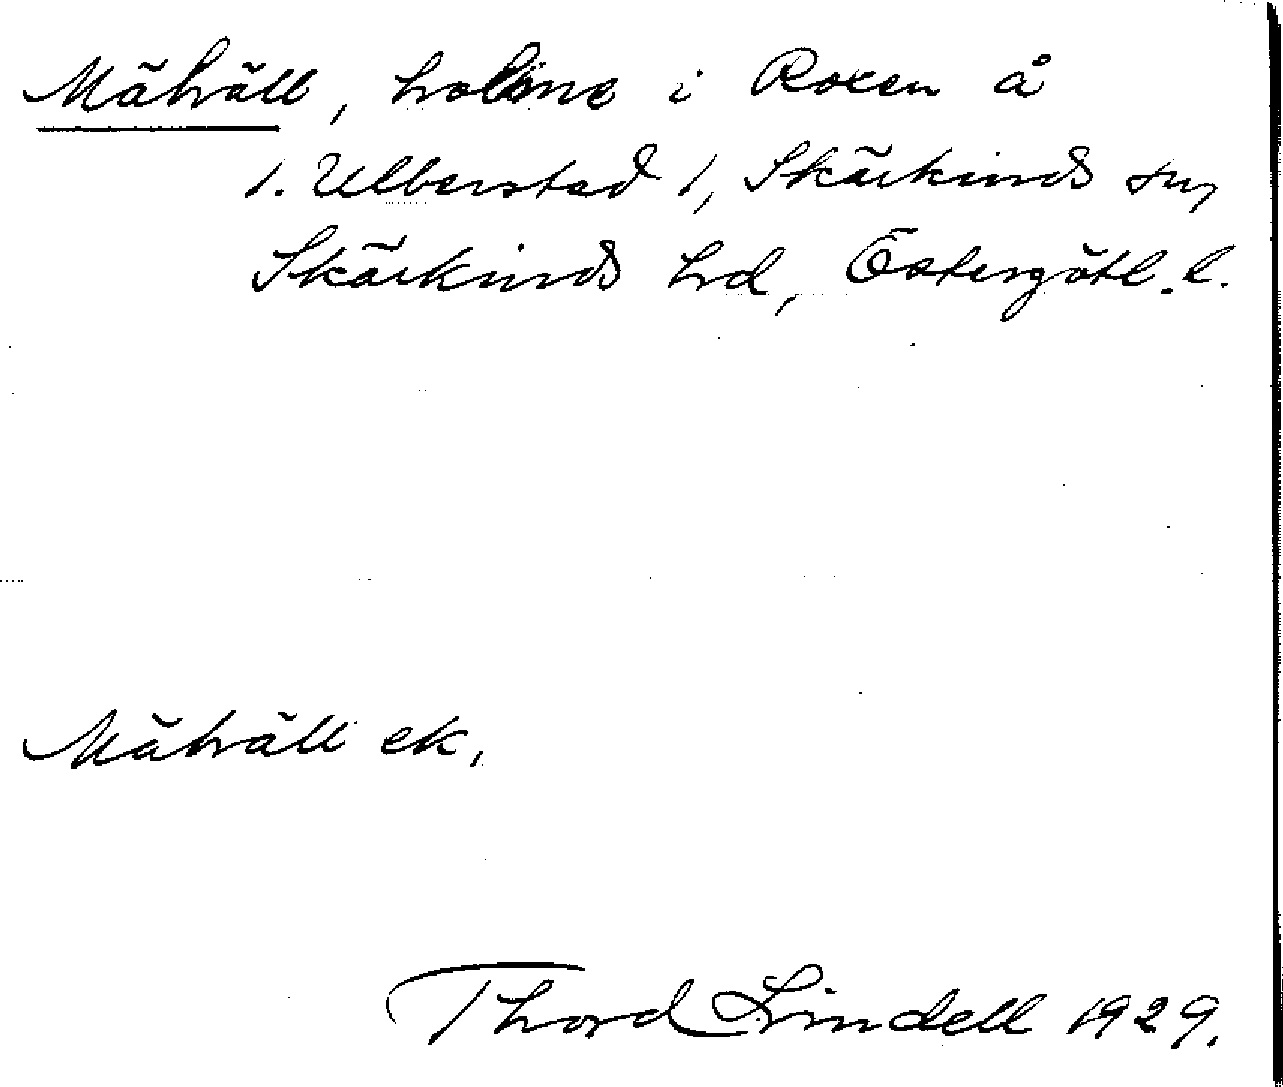 Mähäll, holme i Roxen å
1. Ulberstad 1, Skärkinds sn,
Skärkinds hd, Östergötl. l.
Mähäll ek.
Thord Lindell 1929.